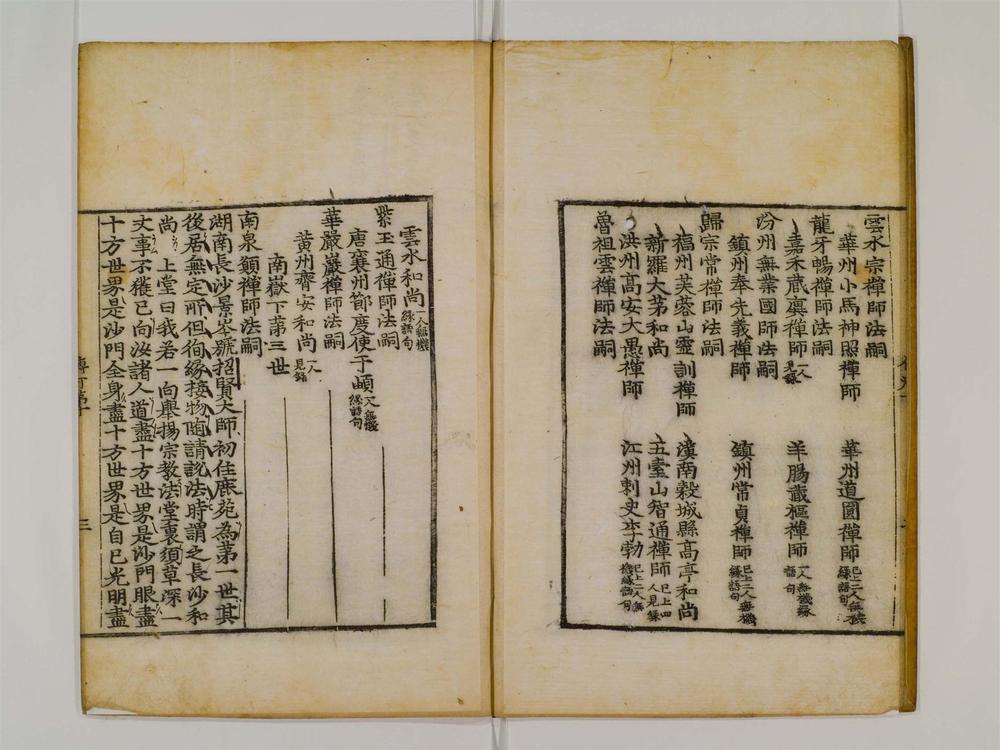 雲水宗禪師法嗣
華州小馬神照禪師 華州道圓禪師 已上二人無機緣語句
龍牙暢禪師法嗣
嘉禾藏廙禪師 一人見錄 羊腸藏樞禪師 一人無機緣語句
汾州無業國師法嗣
鎮州奉先義禪師 鎮州常貞禪師 已上二人無機緣語句
歸宗常禪師法嗣
福州芙蓉山靈訓禪師 漢南穀城縣高亭和尚
新羅大茅和尚 五臺山智通禪師 已上四人見錄
洪州高安大愚禪師 江州刺史李勃 已上二人無機緣語句
魯祖雲禪師法嗣
雲水和尚 一人無機緣語句
紫玉通禪師法嗣
唐襄州節度使于頔 一人無機緣語句
華嚴嚴禪師法嗣
黃州齊安和尚 一人見錄
南嶽下第三世
南泉願禪師法嗣
湖南長沙景岑號招賢大師初住鹿苑為第一世其
後居無定所但徇緣接物隨請說法時謂之長沙和
尚 上堂曰我若一向舉揚宗教法堂裏須草深一
丈事不獲已向汝諸人道盡十方世界是沙門眼盡
十方世界是沙門全身盡十方世界是自己光明盡
傳灯第十
三